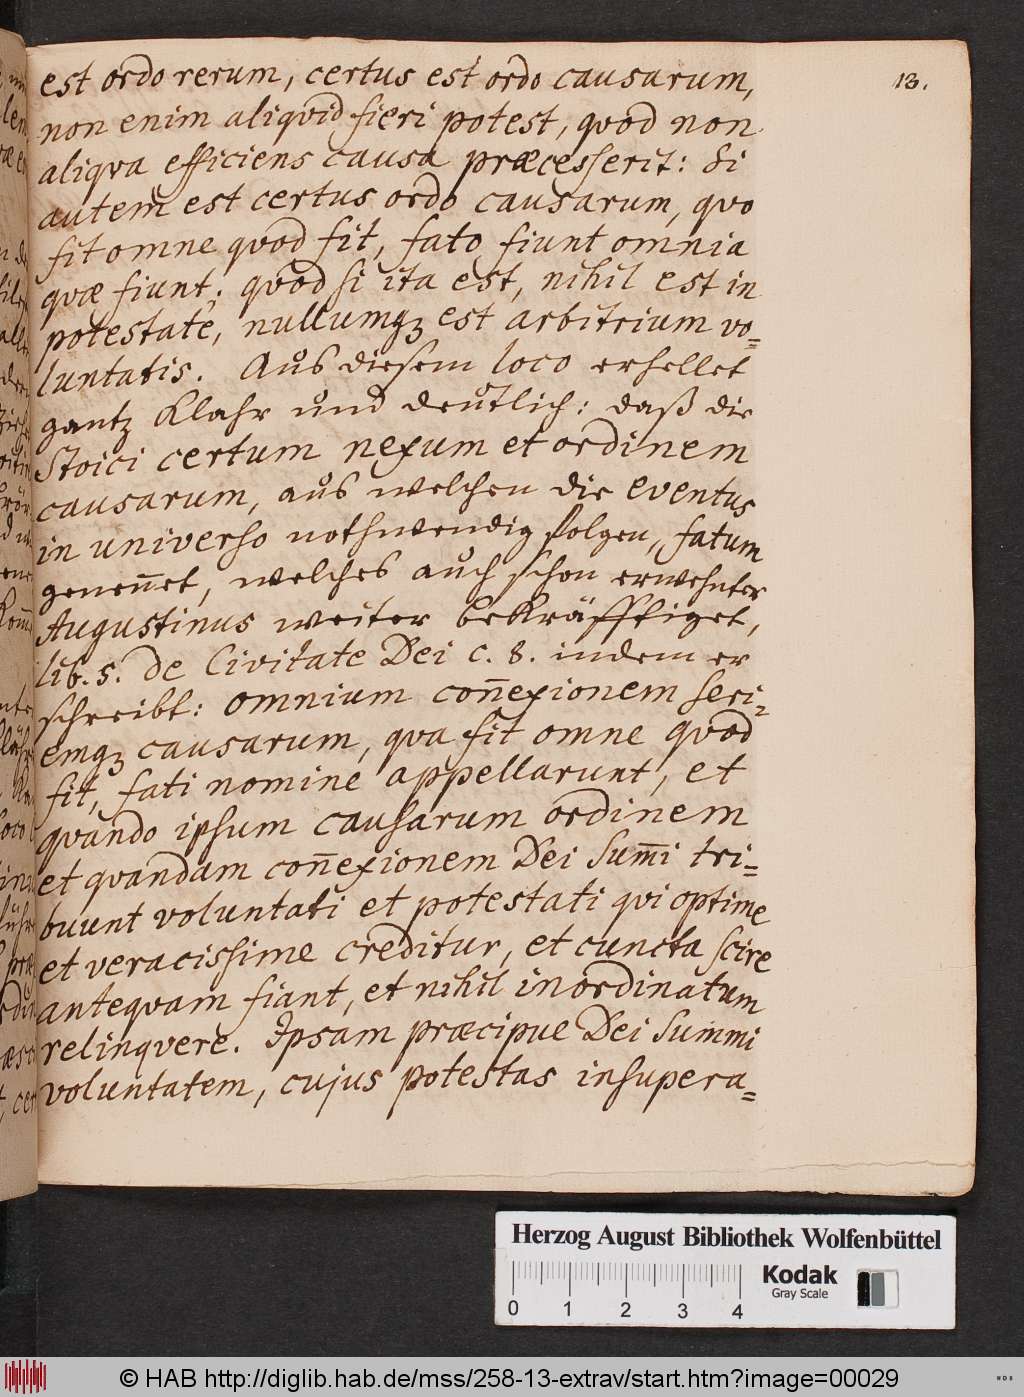 13.
est ordo rerum, certus est ordo causarum,
non enim aliqvid fieri potest, qvod non
aliqva efficiens causa præcesserit: Si
autem est certus ordo causarum, qvo
fit omne qvod fit, fato fiunt omnia
qvæ fiunt; qvod si ita est, nihil est in
potestate, nullumqꝫ est arbitrium vo-
luntatis. Auß diesem loco erhellet
gantz klahr und deutlich: daß die
Stoici certum nexum et ordinem
causarum, auß welchen die eventus
in universo nothwendig folgen, fatum
geneñet, welches auch schon erwehnter
Augustinus weiter bekräfftiget,
lib. 5. de Civitate Dei c. 8. indem er
schreibt: omnium coñexionem seri-
emqꝫ causarum, qva fit omne qvod
fit, fati nomine appellarunt, et
qvando ipsum causarum ordinem
et qvandam coñexionem Dei sum̄i tri-
buunt voluntati et potestati qvi optime
et veracissime creditur, et cuncta scire
anteqvam fiant, et nihil inordinatum
relinqvere. Ipsam præcipue Dei summi
voluntatem, cujus potestas insupera-
Herzog August Bibliothek Wolfenbüttel
0 1 2 3 4
Kodak
Gray Scale
© HAB http://diglib.hab.de/mss/258-13-extrav/start.htm?image=00029